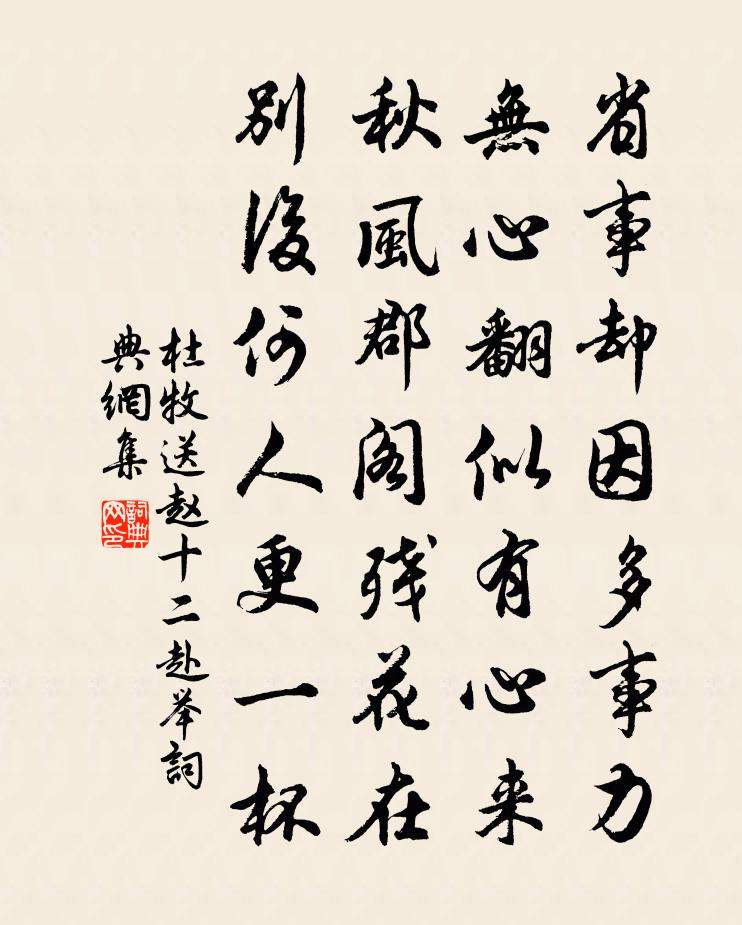 省事却因多事力
無心翻似有心来
秋風郡阁残花在
別後何人更一杯
杜牧送赵十二赴举詞
典網集
詞典
网印